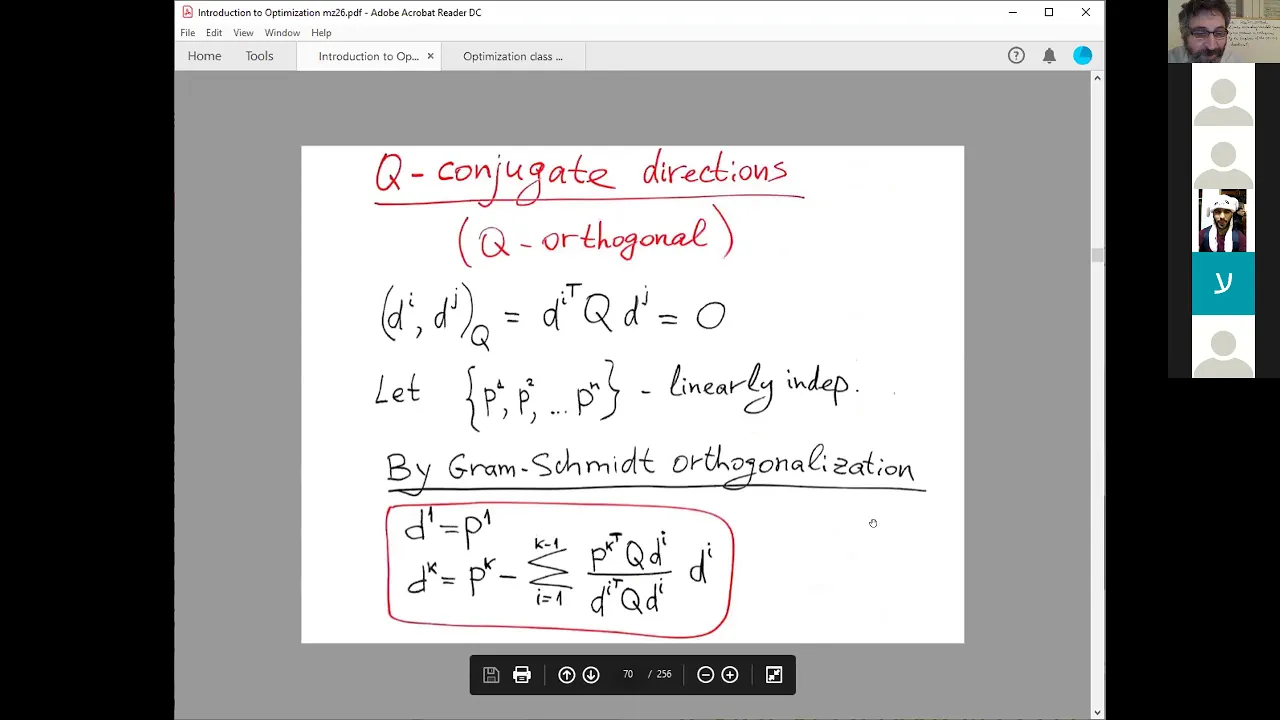 Introduction to Optimization mz26.pdf - Adobe Acrobat Reader DC
File Edit View Window Help
Home Tools Introduction to Op... × Optimization class ...
Q - conjugate directions
(Q - orthogonal)
(dⁱ, dʲ)_Q = dⁱᵀ Q dʲ = 0
Let {p¹, p², ... pⁿ} - linearly indep.
By Gram-Schmidt orthogonalization
d¹ = p¹
dᵏ = pᵏ - ∑_{i=1}^{k-1} (pᵏᵀ Q dⁱ / dⁱᵀ Q dⁱ) dⁱ
70 / 256
ע